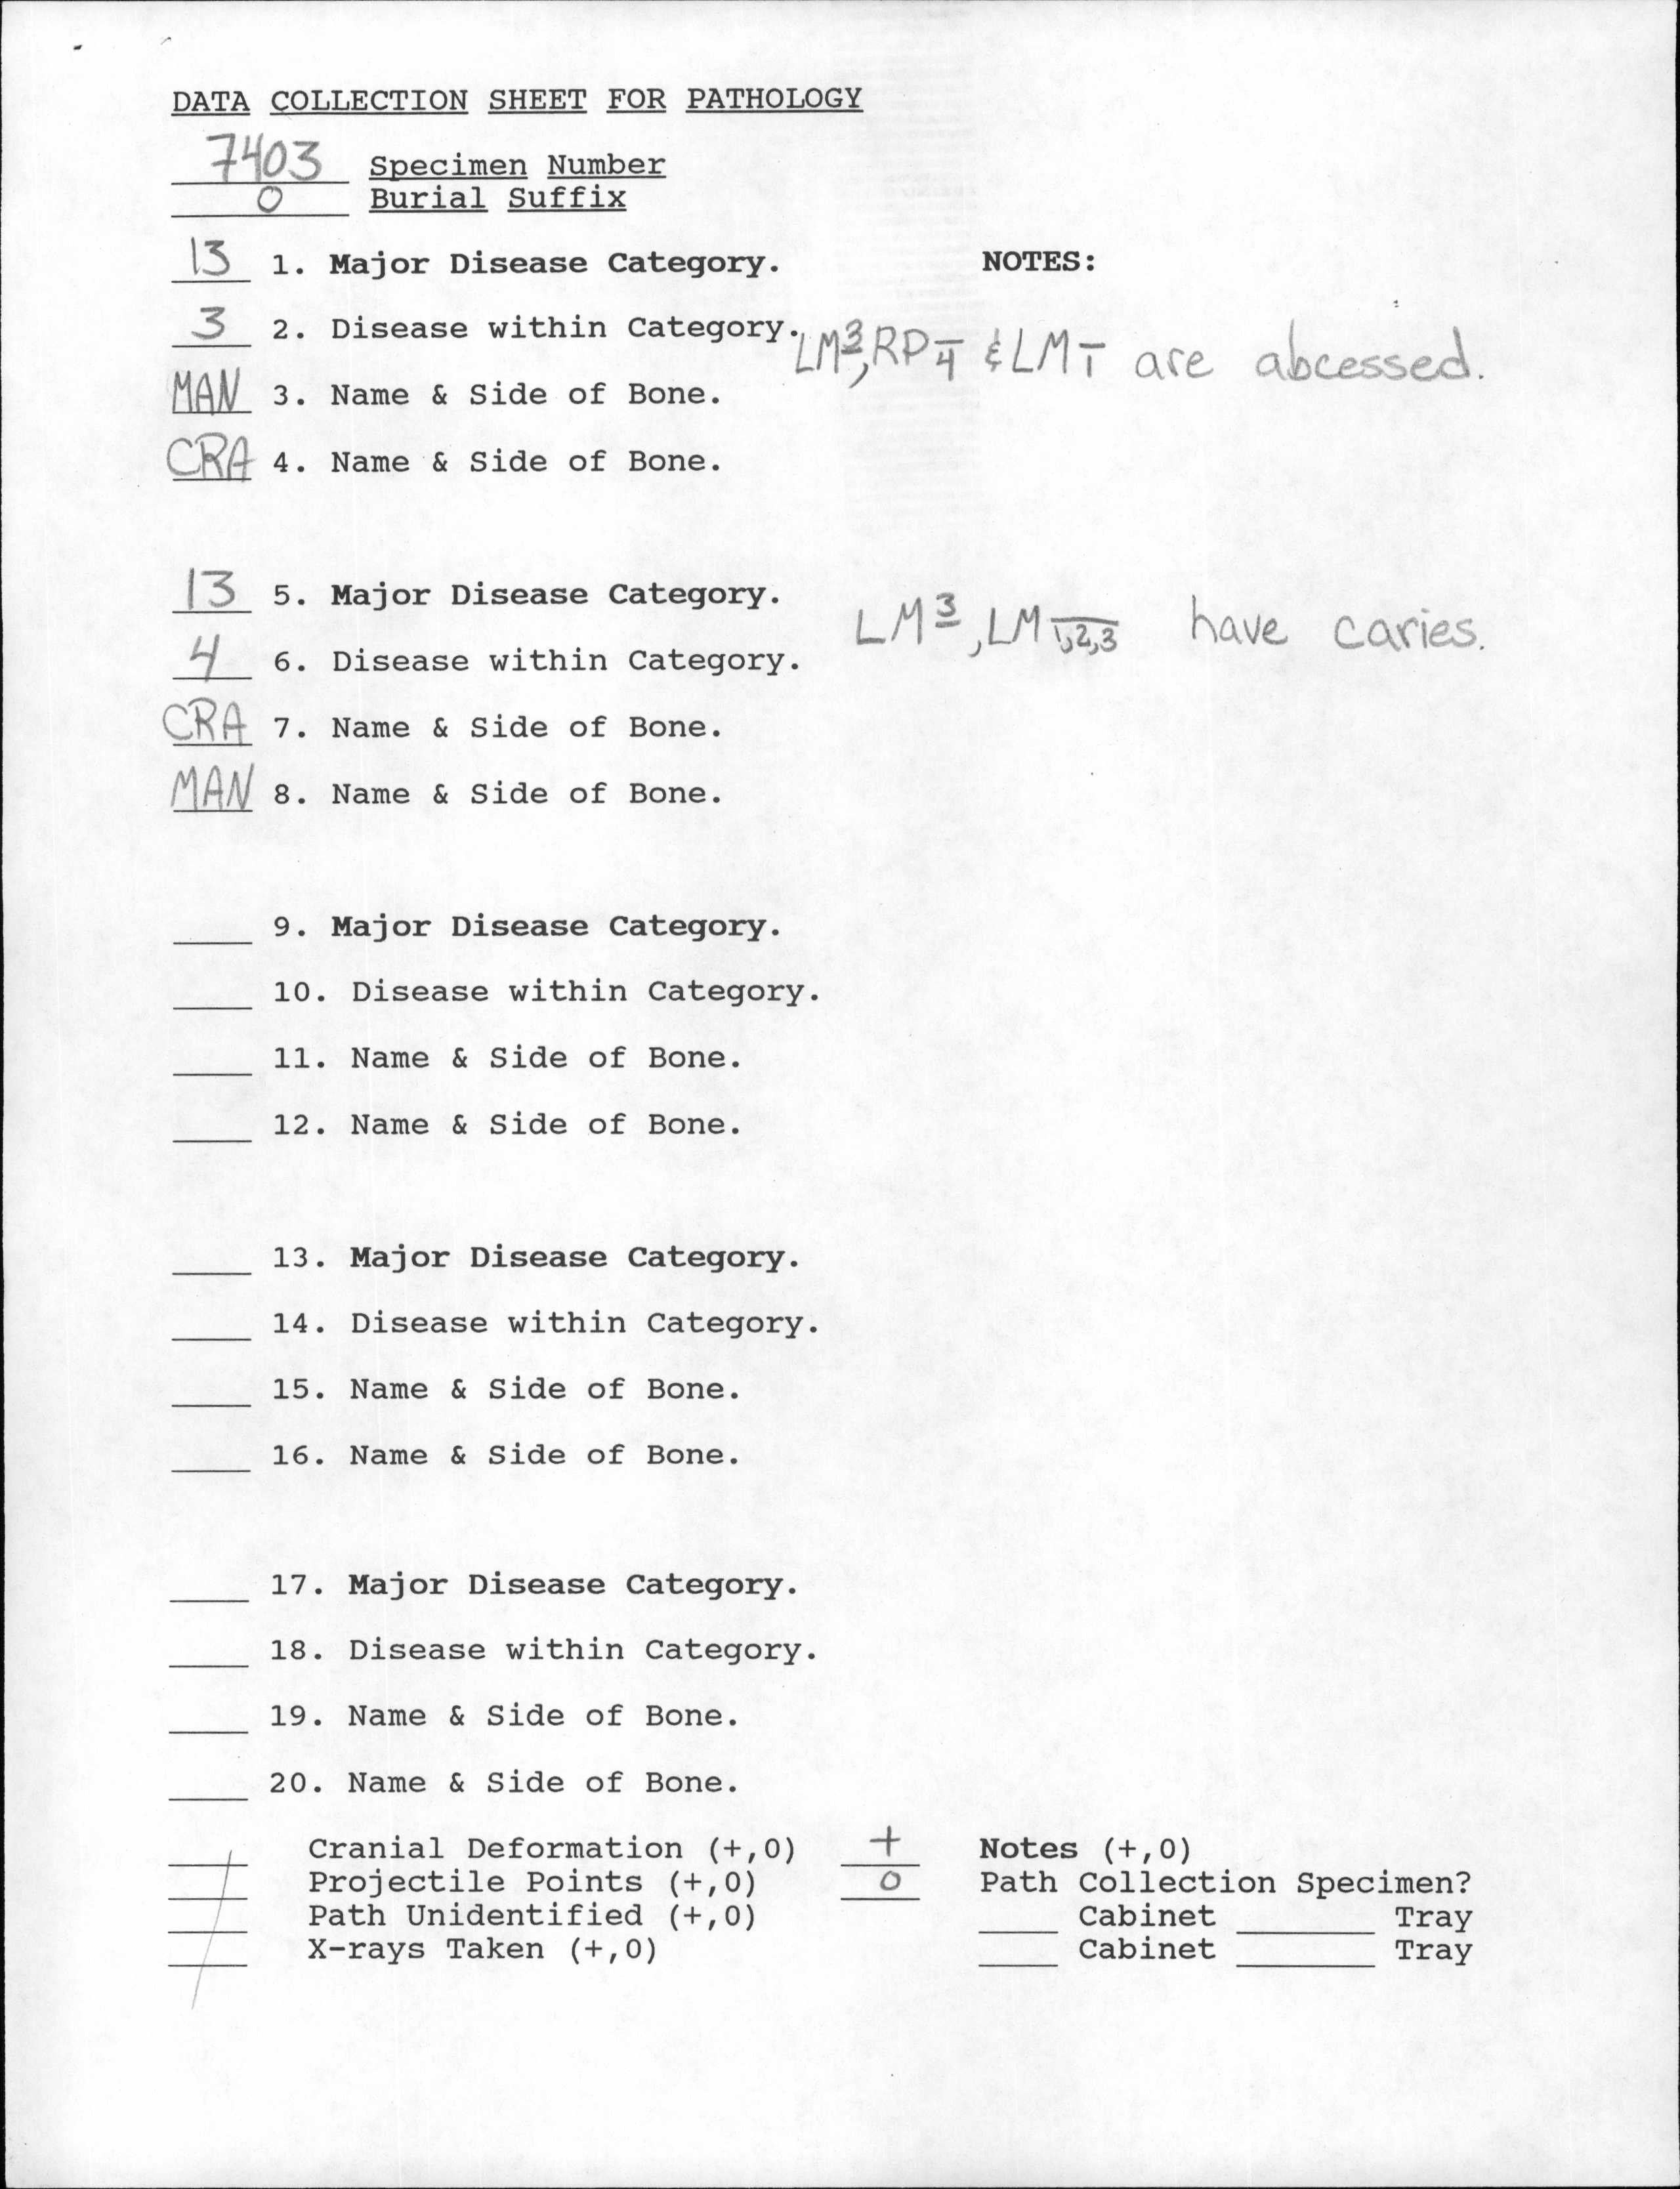 DATA COLLECTION SHEET FOR PATHOLOGY
7403 Specimen Number
0 Burial Suffix
13 1. Major Disease Category. NOTES:
3 2. Disease within Category.
LM3, RP4 & LM1 are abcessed.
MAN 3. Name & Side of Bone.
CRA 4. Name & Side of Bone.
13 5. Major Disease Category.
LM3, LM1,2,3 have caries.
4 6. Disease within Category.
CRA 7. Name & Side of Bone.
MAN 8. Name & Side of Bone.
9. Major Disease Category.
10. Disease within Category.
11. Name & Side of Bone.
12. Name & Side of Bone.
13. Major Disease Category.
14. Disease within Category.
15. Name & Side of Bone.
16. Name & Side of Bone.
17. Major Disease Category.
18. Disease within Category.
19. Name & Side of Bone.
20. Name & Side of Bone.
Cranial Deformation (+,0) + Notes (+,0)
Projectile Points (+,0) 0 Path Collection Specimen?
Path Unidentified (+,0) Cabinet Tray
X-rays Taken (+,0) Cabinet Tray